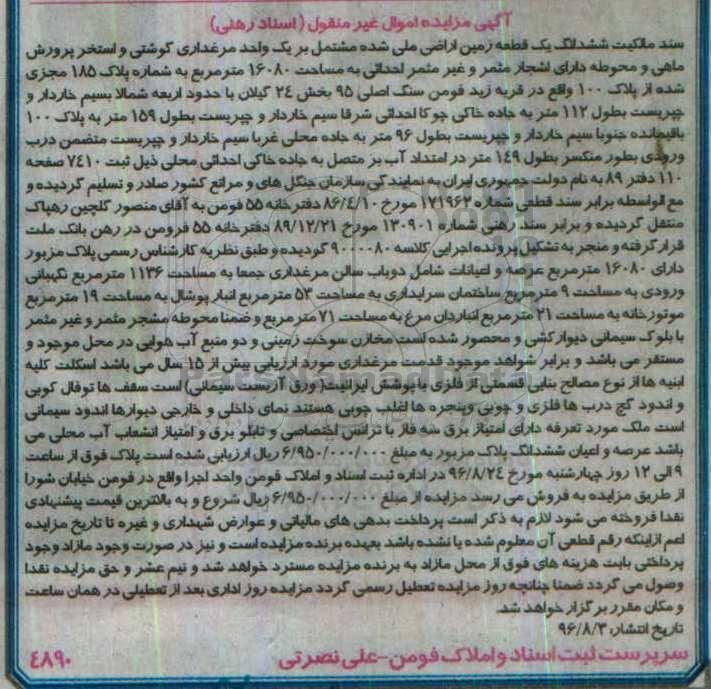 آگهی مزایده اموال غیر منقول (اسناد رهنی)
سند مالکیت ششدانگ یک قطعه زمین اراضی ملی شده مشتمل بر یک واحد مرغداری گوشتی و استخر پرورش
ماهی و محوطه دارای اشجار مثمر و غیر مثمر احداثی به مساحت ۱۶۰۸۰ مترمربع به شماره پلاک ۱۸۵ مجزی
شده از پلاک ۱۰۰ واقع در قریه زید فومن سنگ اصلی ۹۵ بخش ۲٤ گیلان با حدود اربعه شمالا بسیم خاردار و
چپریست بطول ۱۱۲ متر به جاده خاکی جوکا احداثی شرقا سیم خاردار و چپریست بطول ۱۵۹ متر به پلاک ۱۰۰
باقیمانده جنوبا سیم خاردار و چپریست بطول ۹۶ متر به جاده محلی غربا سیم خاردار و چپریست متضمن درب
ورودی بطور منکسر بطول ۱٤۹ متر در امتداد آب بر متصل به جاده خاکی احداثی محلی ذیل ثبت ۷٤۱۰ صفحه
۱۱۰ دفتر ۸۹ به نام دولت جمهوری ایران به نمایندگی سازمان جنگل های و مراتع کشور صادر و تسلیم گردیده و
مع الواسطه برابر سند قطعی شماره ۱۷۱۹۶۲ مورخ ۸۶/٤/۱۰ دفترخانه ۵۵ فومن به آقای منصور گلچین رهپاک
منتقل گردیده و برابر سند رهنی شماره ۱۳۰۹۰۱ مورخ ۸۹/۱۲/۲۱ دفترخانه ۵۵ فرومن در رهن بانک ملت
قرار گرفته و منجر به تشکیل پرونده اجرایی کلاسه ۹۰۰۰۰۸۰ گردیده و طبق نظریه کارشناس رسمی پلاک مزبور
دارای ۱۶۰۸۰ مترمربع عرصه و اعیانات شامل دوباب سالن مرغداری جمعا به مساحت ۱۱۳۶ مترمربع نگهبانی
ورودی به مساحت ۹ مترمربع ساختمان سرایداری به مساحت ۵۳ مترمربع انبار پوشال به مساحت ۱۹ مترمربع
موتورخانه به مساحت ۲۱ مترمربع انباردان مرغ به مساحت ۷۱ مترمربع و ضمنا محوطه مشجر مثمر و غیر مثمر
با بلوک سیمانی دیوارکشی و محصور شده است مخازن سوخت زمینی و دو منبع آب هوایی در محل موجود و
مستقر می باشد و برابر شواهد موجود قدمت مرغداری مورد ارزیابی بیش از ۱۵ سال می باشد اسکلت کلیه
ابنیه ها از نوع مصالح بنایی قسمتی از فلزی با پوشش ایرانیت( ورق آزبست سیمانی) است سقف ها توفال کوبی
و اندود گچ درب ها فلزی و چوبی وپنجره ها اغلب چوبی هستند نمای داخلی و خارجی دیوارها اندود سیمانی
است ملک مورد تعرفه دارای امتیاز برق سه فاز با ترانس اختصاصی و تابلو برق و امتیاز انشعاب آب محلی می
باشد عرصه و اعیان ششدانگ پلاک مزبور به مبلغ ۶/۹۵۰/۰۰۰/۰۰۰ ریال ارزیابی شده است پلاک فوق از ساعت
۹ الی ۱۲ روز چهارشنبه مورخ ۹۶/۸/۲٤ در اداره ثبت اسناد و املاک فومن واحد اجرا واقع در فومن خیابان شورا
از طریق مزایده به فروش می رسد مزایده از مبلغ ۶/۹۵۰/۰۰۰/۰۰۰ ریال شروع و به بالاترین قیمت پیشنهادی
نقدا فروخته می شود لازم به ذکر است پرداخت بدهی های مالیاتی و عوارض شهداری و غیره تا تاریخ مزایده
اعم ازاینکه رقم قطعی آن معلوم شده یا نشده باشد بعهده برنده مزایده است و نیز در صورت وجود مازاد وجوه
پرداختی بابت هزینه های فوق از محل مازاد به برنده مزایده مسترد خواهد شد و نیم عشر و حق مزایده نقدا
وصول می گردد ضمنا چنانچه روز مزایده تعطیل رسمی گردد مزایده روز اداری بعد از تعطیلی در همان ساعت
و مکان مقرر برگزار خواهد شد.
تاریخ انتشار: ۹۶/۸/۳
سرپرست ثبت اسناد و املاک فومن-علی نصرتی
٤۸۹۰